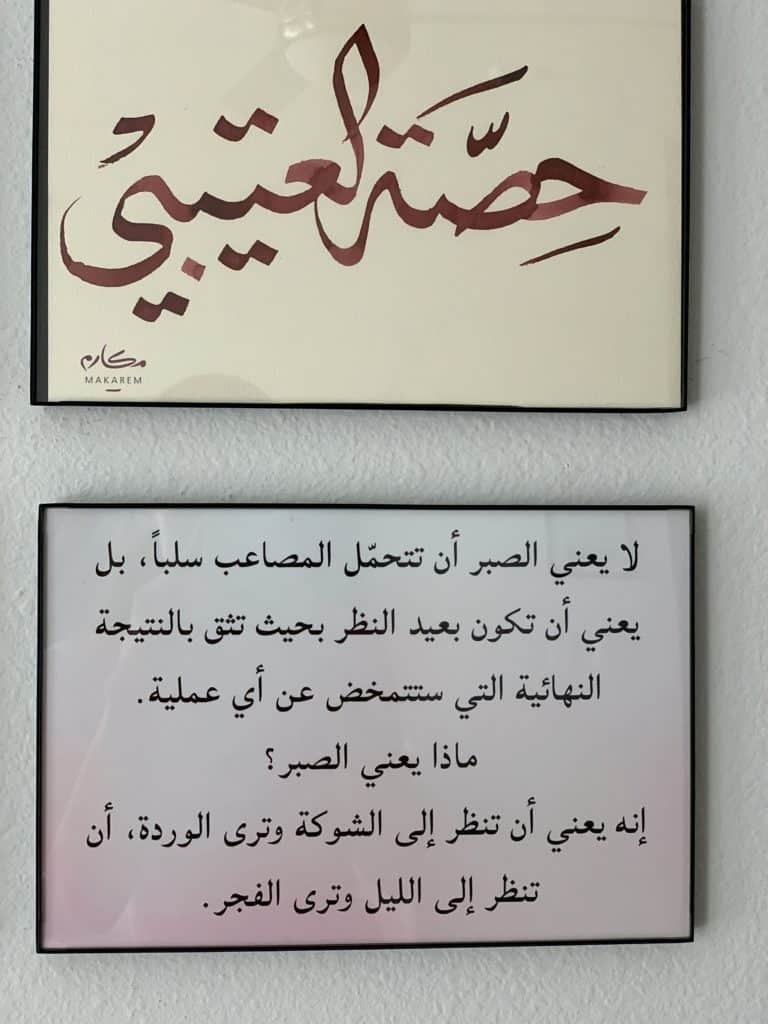 حِصَّة العتيبي
مكارم
MAKAREM
لا يعني الصبر أن تتحمّل المصاعب سلباً، بل
يعني أن تكون بعيد النظر بحيث تثق بالنتيجة
النهائية التي ستتمخض عن أي عملية.
ماذا يعني الصبر؟
إنه يعني أن تنظر إلى الشوكة وترى الوردة، أن
تنظر إلى الليل وترى الفجر.